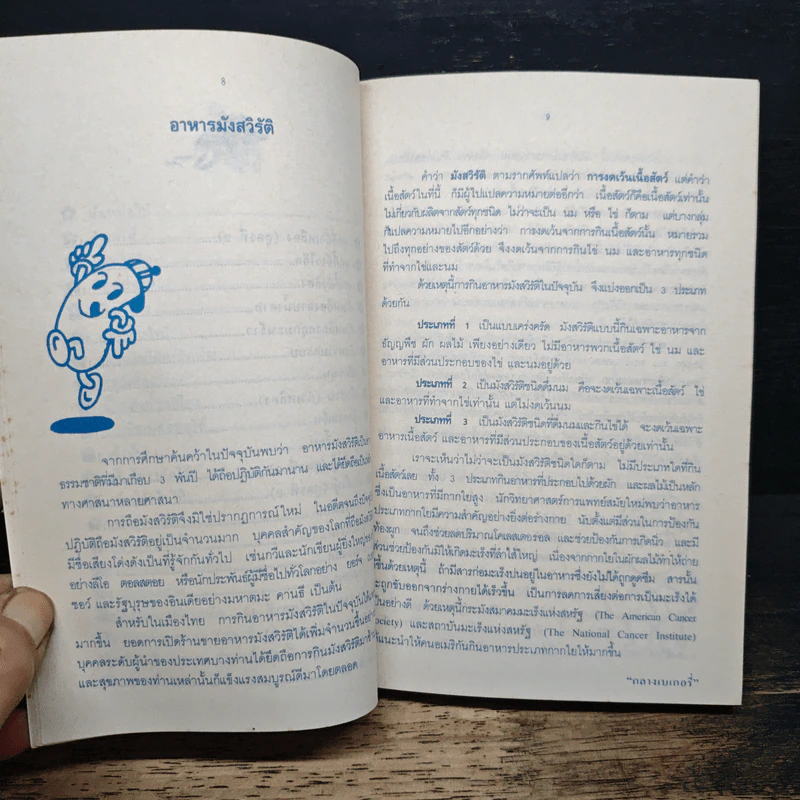 8
อาหารมังสวิรัติ
จากการศึกษาค้นคว้าในปัจจุบันพบว่า อาหารมังสวิรัติเป็น
ธรรมชาติที่มีมาเกือบ 3 พันปี ได้ถือปฏิบัติกันมานาน และได้ยึดถือเป็น
ทางศาสนาหลายศาสนา
การถือมังสวิรัติจึงมิใช่ปรากฏการณ์ใหม่ ในอดีตจนถึง
ปฏิบัติถือมังสวิรัติอยู่เป็นจำนวนมาก บุคคลสำคัญของโลกที่ถือ
มีชื่อเสียงโด่งดังเป็นที่รู้จักกันทั่วไป เช่นกวีและนักเขียนผู้ยิ่งใหญ่
อย่างลีโอ ตอลสตอย หรือนักประพันธ์ผู้มีชื่อไปทั่วโลกอย่าง ยอร์จ
ชอว์ และรัฐบุรุษของอินเดียอย่างมหาตมะ คานธี เป็นต้น
สำหรับในเมืองไทย การกินอาหารมังสวิรัติในปัจจุบันได้
มากขึ้น ยอดการเปิดร้านขายอาหารมังสวิรัติได้เพิ่มจำนวนขึ้น
บุคคลระดับผู้นำของประเทศบางท่านได้ยึดถือการกินมังสวิรัติมา
และสุขภาพของท่านเหล่านั้นก็แข็งแรงสมบูรณ์ดีมาโดยตลอด
9
คำว่า มังสวิรัติ ตามรากศัพท์แปลว่า การงดเว้นเนื้อสัตว์ แต่คำว่า
เนื้อสัตว์ในที่นี้ ก็มีผู้ไปแปลความหมายต่ออีกว่า เนื้อสัตว์ก็คือเนื้อสัตว์เท่านั้น
ไม่เกี่ยวกับผลิตจากสัตว์ทุกชนิด ไม่ว่าจะเป็น นม หรือ ไข่ ก็ตาม แต่บางกลุ่ม
ก็แปลความหมายไปอีกอย่างว่า การงดเว้นจากการกินเนื้อสัตว์นั้น หมายรวม
ไปถึงทุกอย่างของสัตว์ด้วย จึงงดเว้นจากการกินไข่ นม และอาหารทุกชนิด
ที่ทำจากไข่และนม
ด้วยเหตุนี้การกินอาหารมังสวิรัติในปัจจุบัน จึงแบ่งออกเป็น 3 ประเภท
ด้วยกัน
ประเภทที่ 1 เป็นแบบเคร่งครัด มังสวิรัติแบบนี้กินเฉพาะอาหารจาก
ธัญญพืช ผัก ผลไม้ เพียงอย่างเดียว ไม่มีอาหารพวกเนื้อสัตว์ ไข่ นม และ
อาหารที่มีส่วนประกอบของไข่ และนมอยู่ด้วย
ประเภทที่ 2 เป็นมังสวิรัติชนิดดื่มนม คือจะงดเว้นเฉพาะเนื้อสัตว์ ไข่
และอาหารที่ทำจากไข่เท่านั้น แต่ไม่งดเว้นนม
ประเภทที่ 3 เป็นมังสวิรัติชนิดที่ดื่มนมและกินไข่ได้ จะงดเว้นเฉพาะ
อาหารเนื้อสัตว์ และอาหารที่มีส่วนประกอบของเนื้อสัตว์อยู่ด้วยเท่านั้น
เราจะเห็นว่าไม่ว่าจะเป็นมังสวิรัติชนิดใดก็ตาม ไม่มีประเภทใดที่กิน
เนื้อสัตว์เลย ทั้ง 3 ประเภทกินอาหารที่ประกอบไปด้วยผัก และผลไม้เป็นหลัก
ซึ่งเป็นอาหารที่มีกากใยสูง นักวิทยาศาสตร์การแพทย์สมัยใหม่พบว่าอาหาร
ประเภทกากใยมีความสำคัญอย่างยิ่งต่อร่างกาย นับตั้งแต่มีส่วนในการป้องกัน
ท้องผูก จนถึงช่วยลดปริมาณโคเลสเตอรอล และช่วยป้องกันการเกิดนิ่ว และมี
ส่วนช่วยป้องกันมิให้เกิดมะเร็งที่ลำไส้ใหญ่ เนื่องจากกากใยในผักผลไม้ทำให้ถ่าย
ขึ้นด้วยเหตุนี้ ถ้ามีสารก่อมะเร็งปนอยู่ในอาหารซึ่งยังไม่ได้ถูกดูดซึม สารนั้น
ะถูกขับออกจากร่างกายได้เร็วขึ้น เป็นการลดการเสี่ยงต่อการเป็นมะเร็งได้
อย่างดี ด้วยเหตุนี้กระมังสมาคมมะเร็งแห่งสหรัฐ (The American Cancer
ociety) และสถาบันมะเร็งแห่งสหรัฐ (The National Cancer Institute)
แนะนำให้คนอเมริกันกินอาหารประเภทกากใยให้มากขึ้น
"กลางเบเกอรี่"